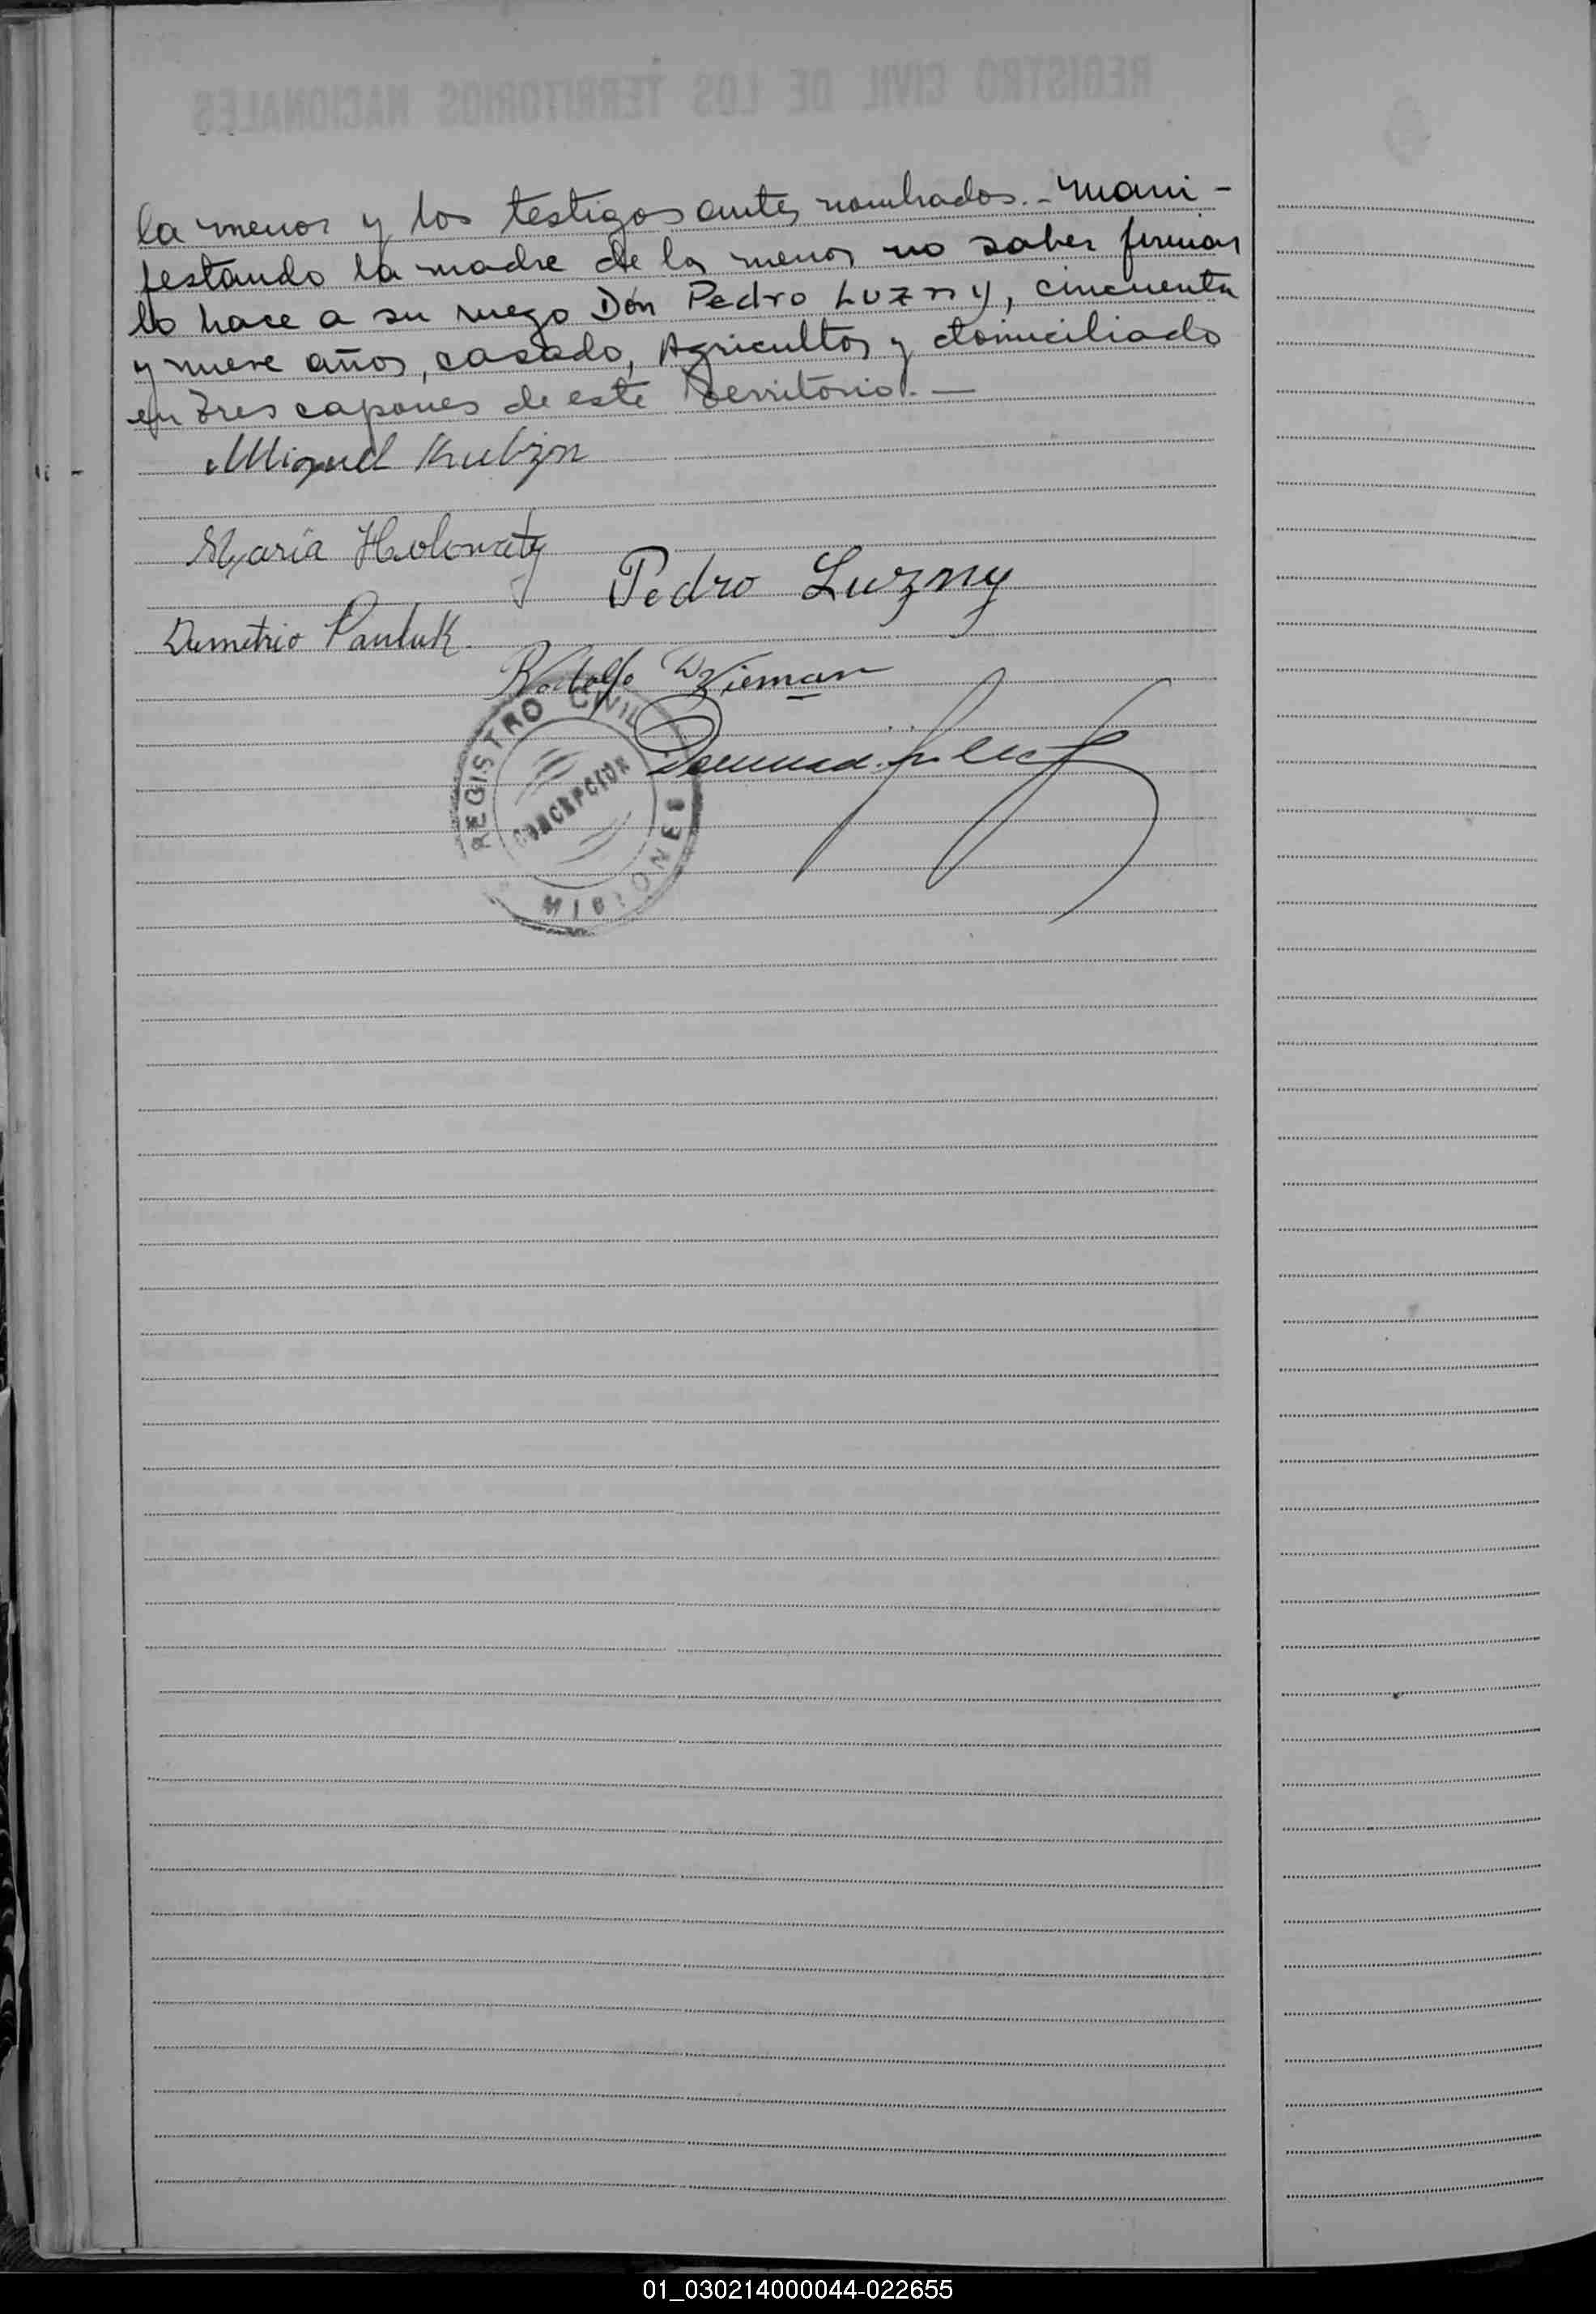 REGISTRO CIVIL DE LOS TERRITORIOS NACIONALES
la menor y los testigos antes nombrados.- Mani-
festando la madre de la menor no saber firmar
lo hace a su ruego Don Pedro Luzny, cincuenta
y nueve años, casado, Agricultor y domiciliado
en Tres capones de este Territorio.-
Miguel
María Holowaty
Pedro Luzny
Demetrio Pauluk
Rodolfo
REGISTRO CIVIL
CONCEPCIÓN
MISIONES
01_030214000044-022655